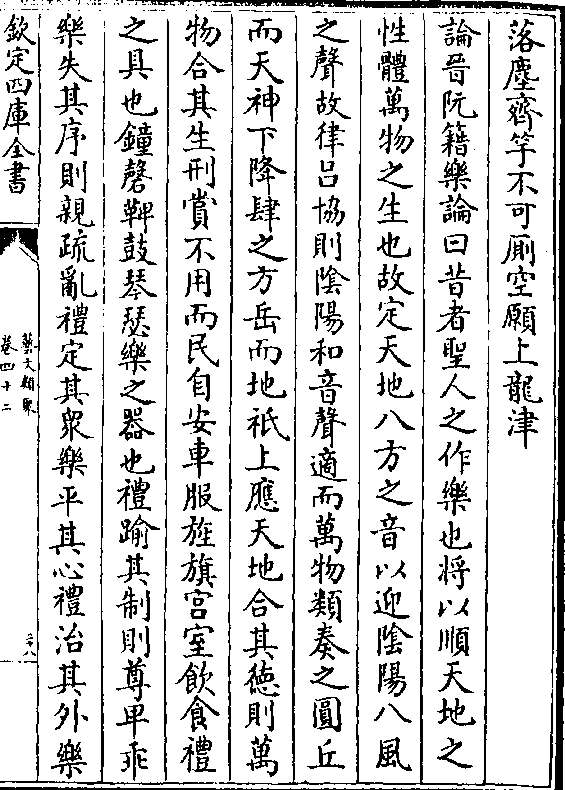 落塵齊竽不可厠空願上龍津
論晉阮籍樂論曰昔者聖人之作樂也將以順天地之
性體萬物之生也故定天地八方之音以迎隂陽八風
之聲故律呂協則隂陽和音聲適而萬物類奏之圓丘
而天神下降肆之方岳而地祇上應天地合其徳則萬
物合其生刑賞不用而民自安車服旌旗宫室飲食禮
之具也鐘磬鞞鼓琴瑟樂之器也禮踰其制則尊卑乖
樂失其序則親疏亂禮定其衆樂平其心禮治其外樂
欽定四庫全書
藝文類聚
卷四十二
二十八